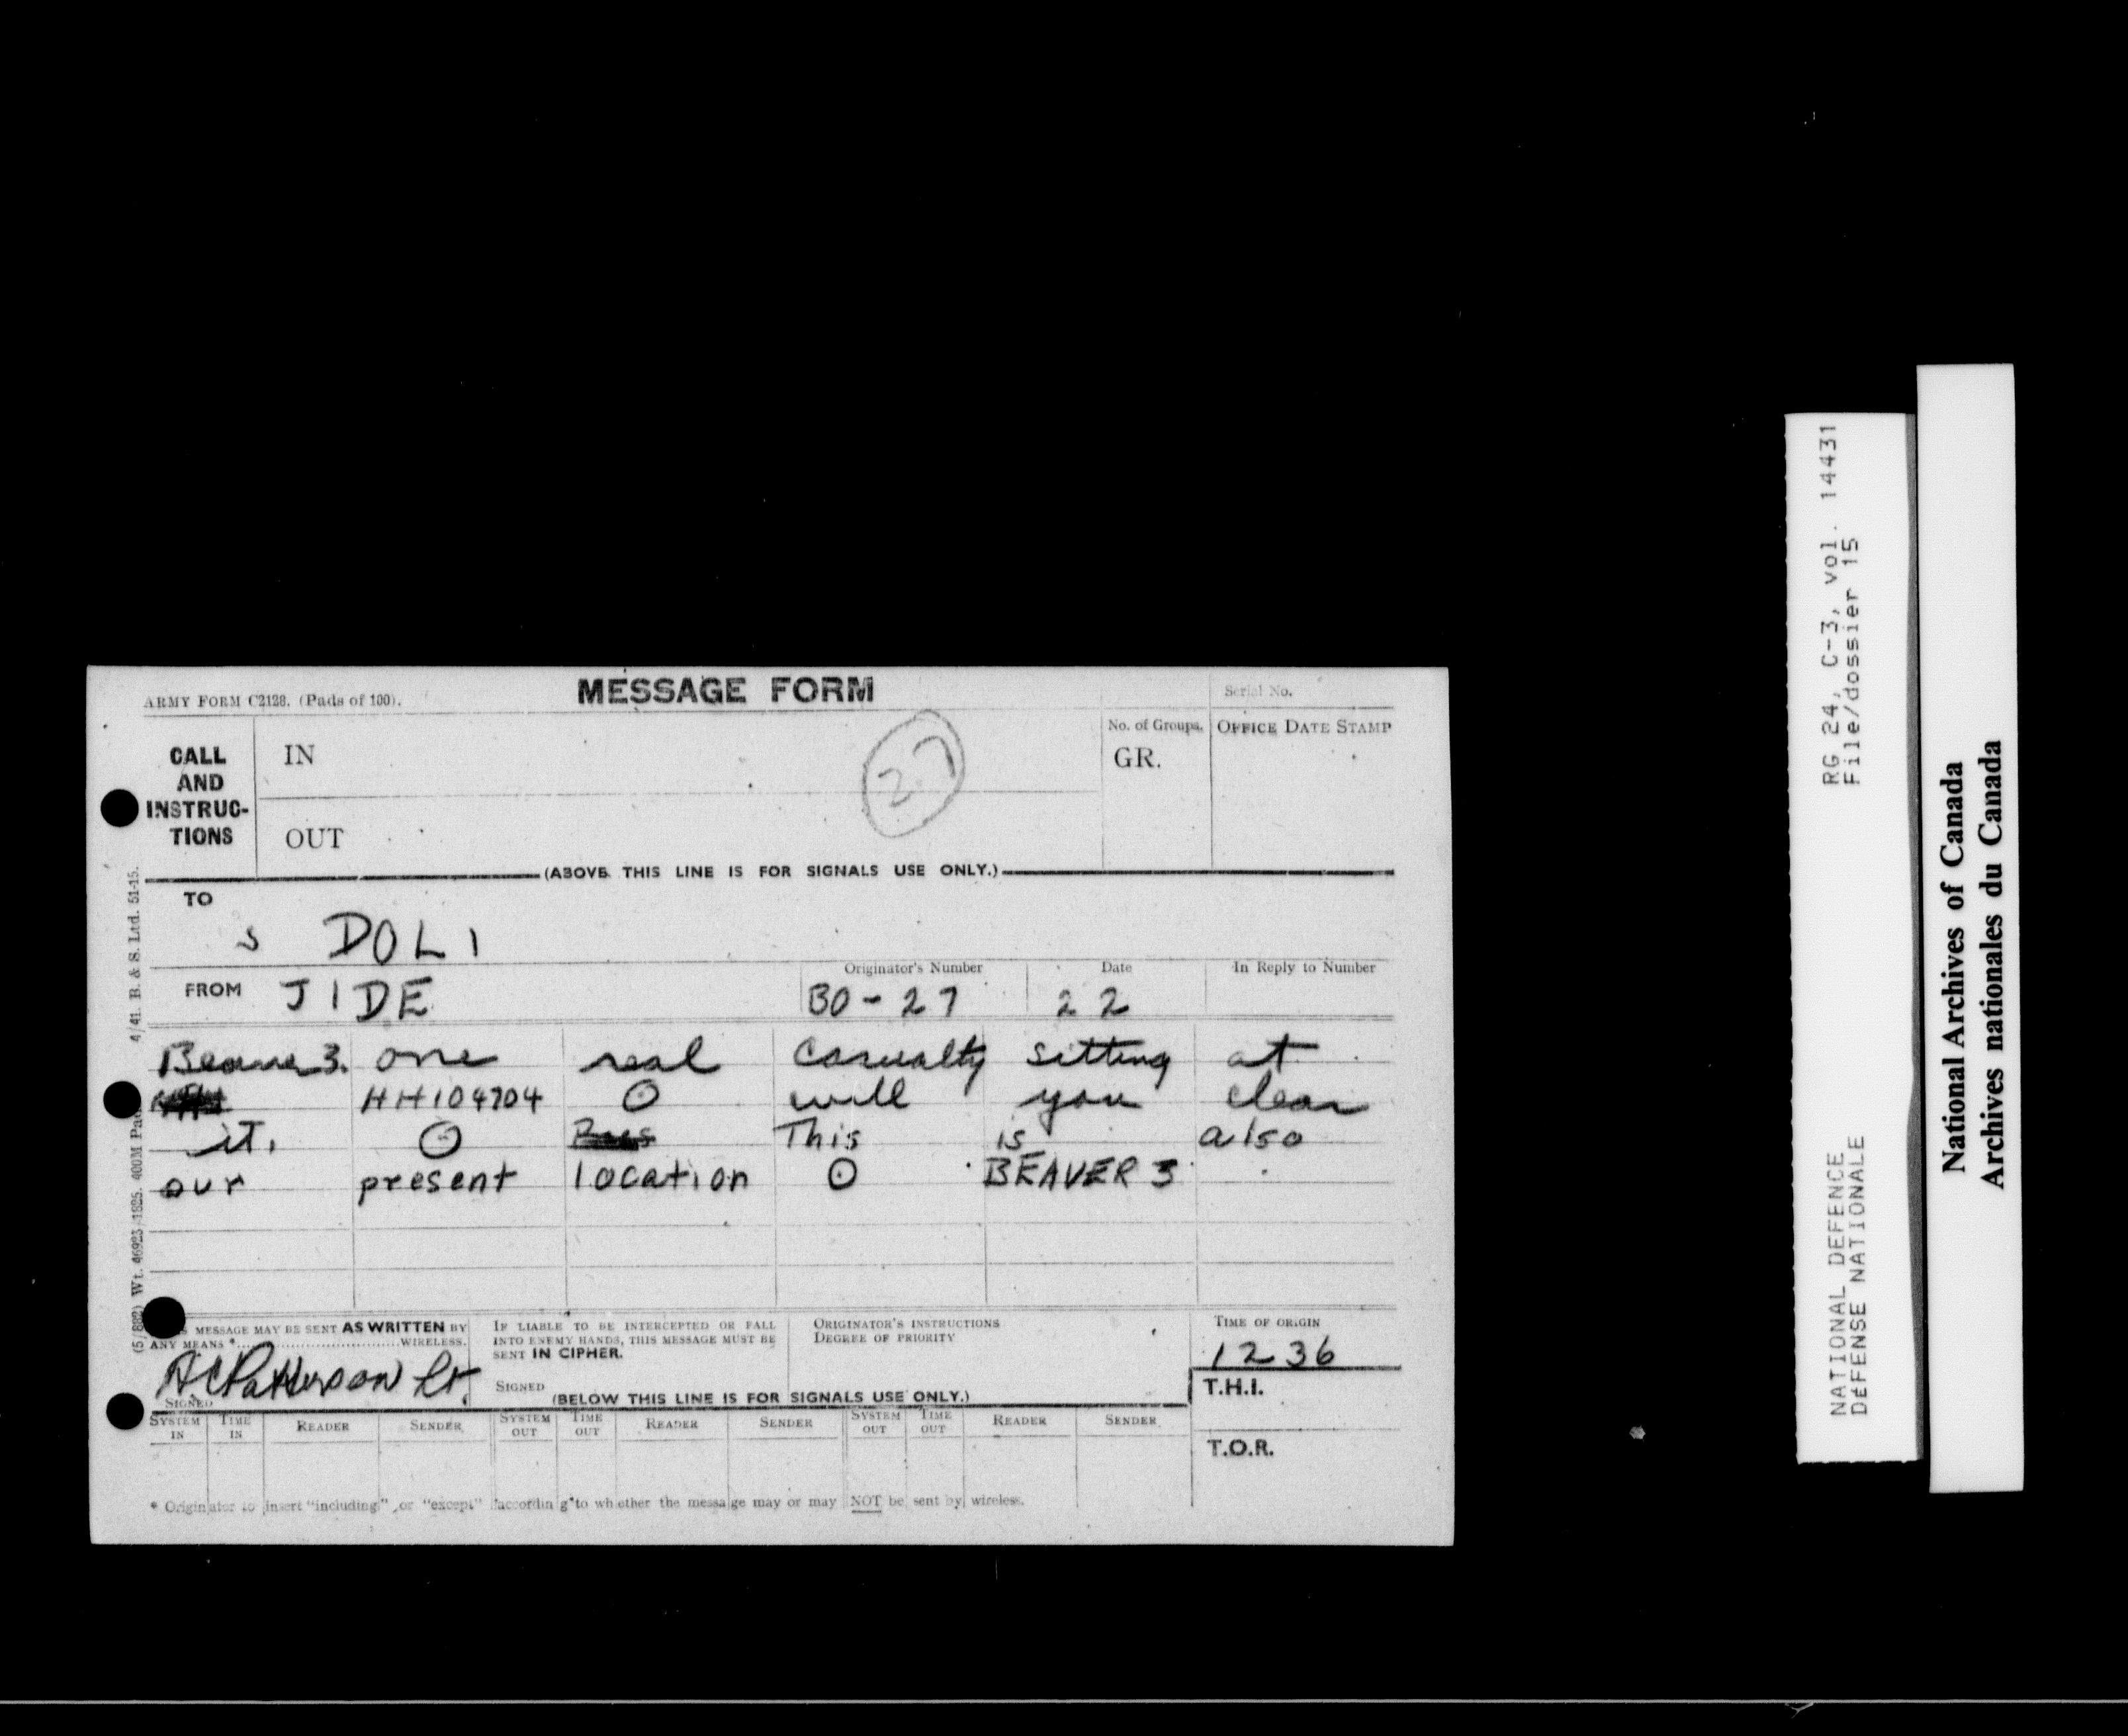 ARMY FORM C2128. (Pads of 100).
MESSAGE FORM
Serial No.
CALL AND INSTRUC- TIONS
IN
27
No. of Groups.
GR.
OFFICE DATE STAMP
OUT
(ABOVE THIS LINE IS FOR SIGNALS USE ONLY.)
TO
DOLI
FROM JIDE
Originator's Number
BO-27
Date
22
In Reply to Number
Beaver 3. one real casualty sitting at
HH104704 ⊙ will you clear
it. ⊙ This is also
our present location ⊙ BEAVER 3
THIS MESSAGE MAY BE SENT AS WRITTEN BY
ANY MEANS *..............................WIRELESS.
A C Patterson Lt
SIGNED
IF LIABLE TO BE INTERCEPTED OR FALL
INTO ENEMY HANDS, THIS MESSAGE MUST BE
SENT IN CIPHER.
SIGNED
ORIGINATOR'S INSTRUCTIONS
DEGREE OF PRIORITY
TIME OF ORIGIN
1236
T.H.I.
(BELOW THIS LINE IS FOR SIGNALS USE ONLY.)
SYSTEM IN TIME IN READER SENDER SYSTEM OUT TIME OUT READER SENDER SYSTEM OUT TIME OUT READER SENDER
T.O.R.
* Originator to insert "including" or "except" according to whether the message may or may NOT be sent by wireless.
4/41. B. & S. Ltd. 51-15.
(5/882) Wt. 46923/1825. 400M
RG 24, C-3, vol. 14431
File/dossier 15
NATIONAL DEFENCE
DÉFENSE NATIONALE
National Archives of Canada
Archives nationales du Canada